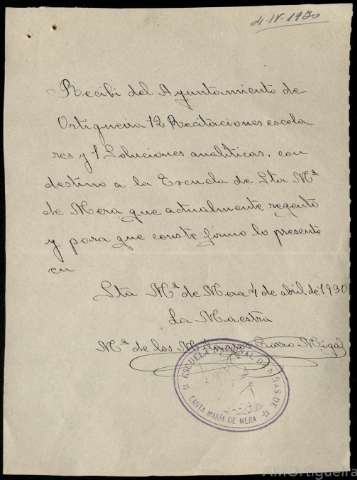 4-IV-1930
Recibí del Ayuntamiento de
Ortigueira 12 Recitaciones escola
res y 1 Soluciones analíticas, con
destino a la Escuela de Sta Mª
de Mera que actualmente regento
y para que conste firmo la presente
en
Sta Mª de Mera 4 de abril de 1930
La Maestra
Mª de los
ESCUELA NACIONAL DE NIÑAS DE
SANTA MARÍA DE MERA
AMOrtigueira